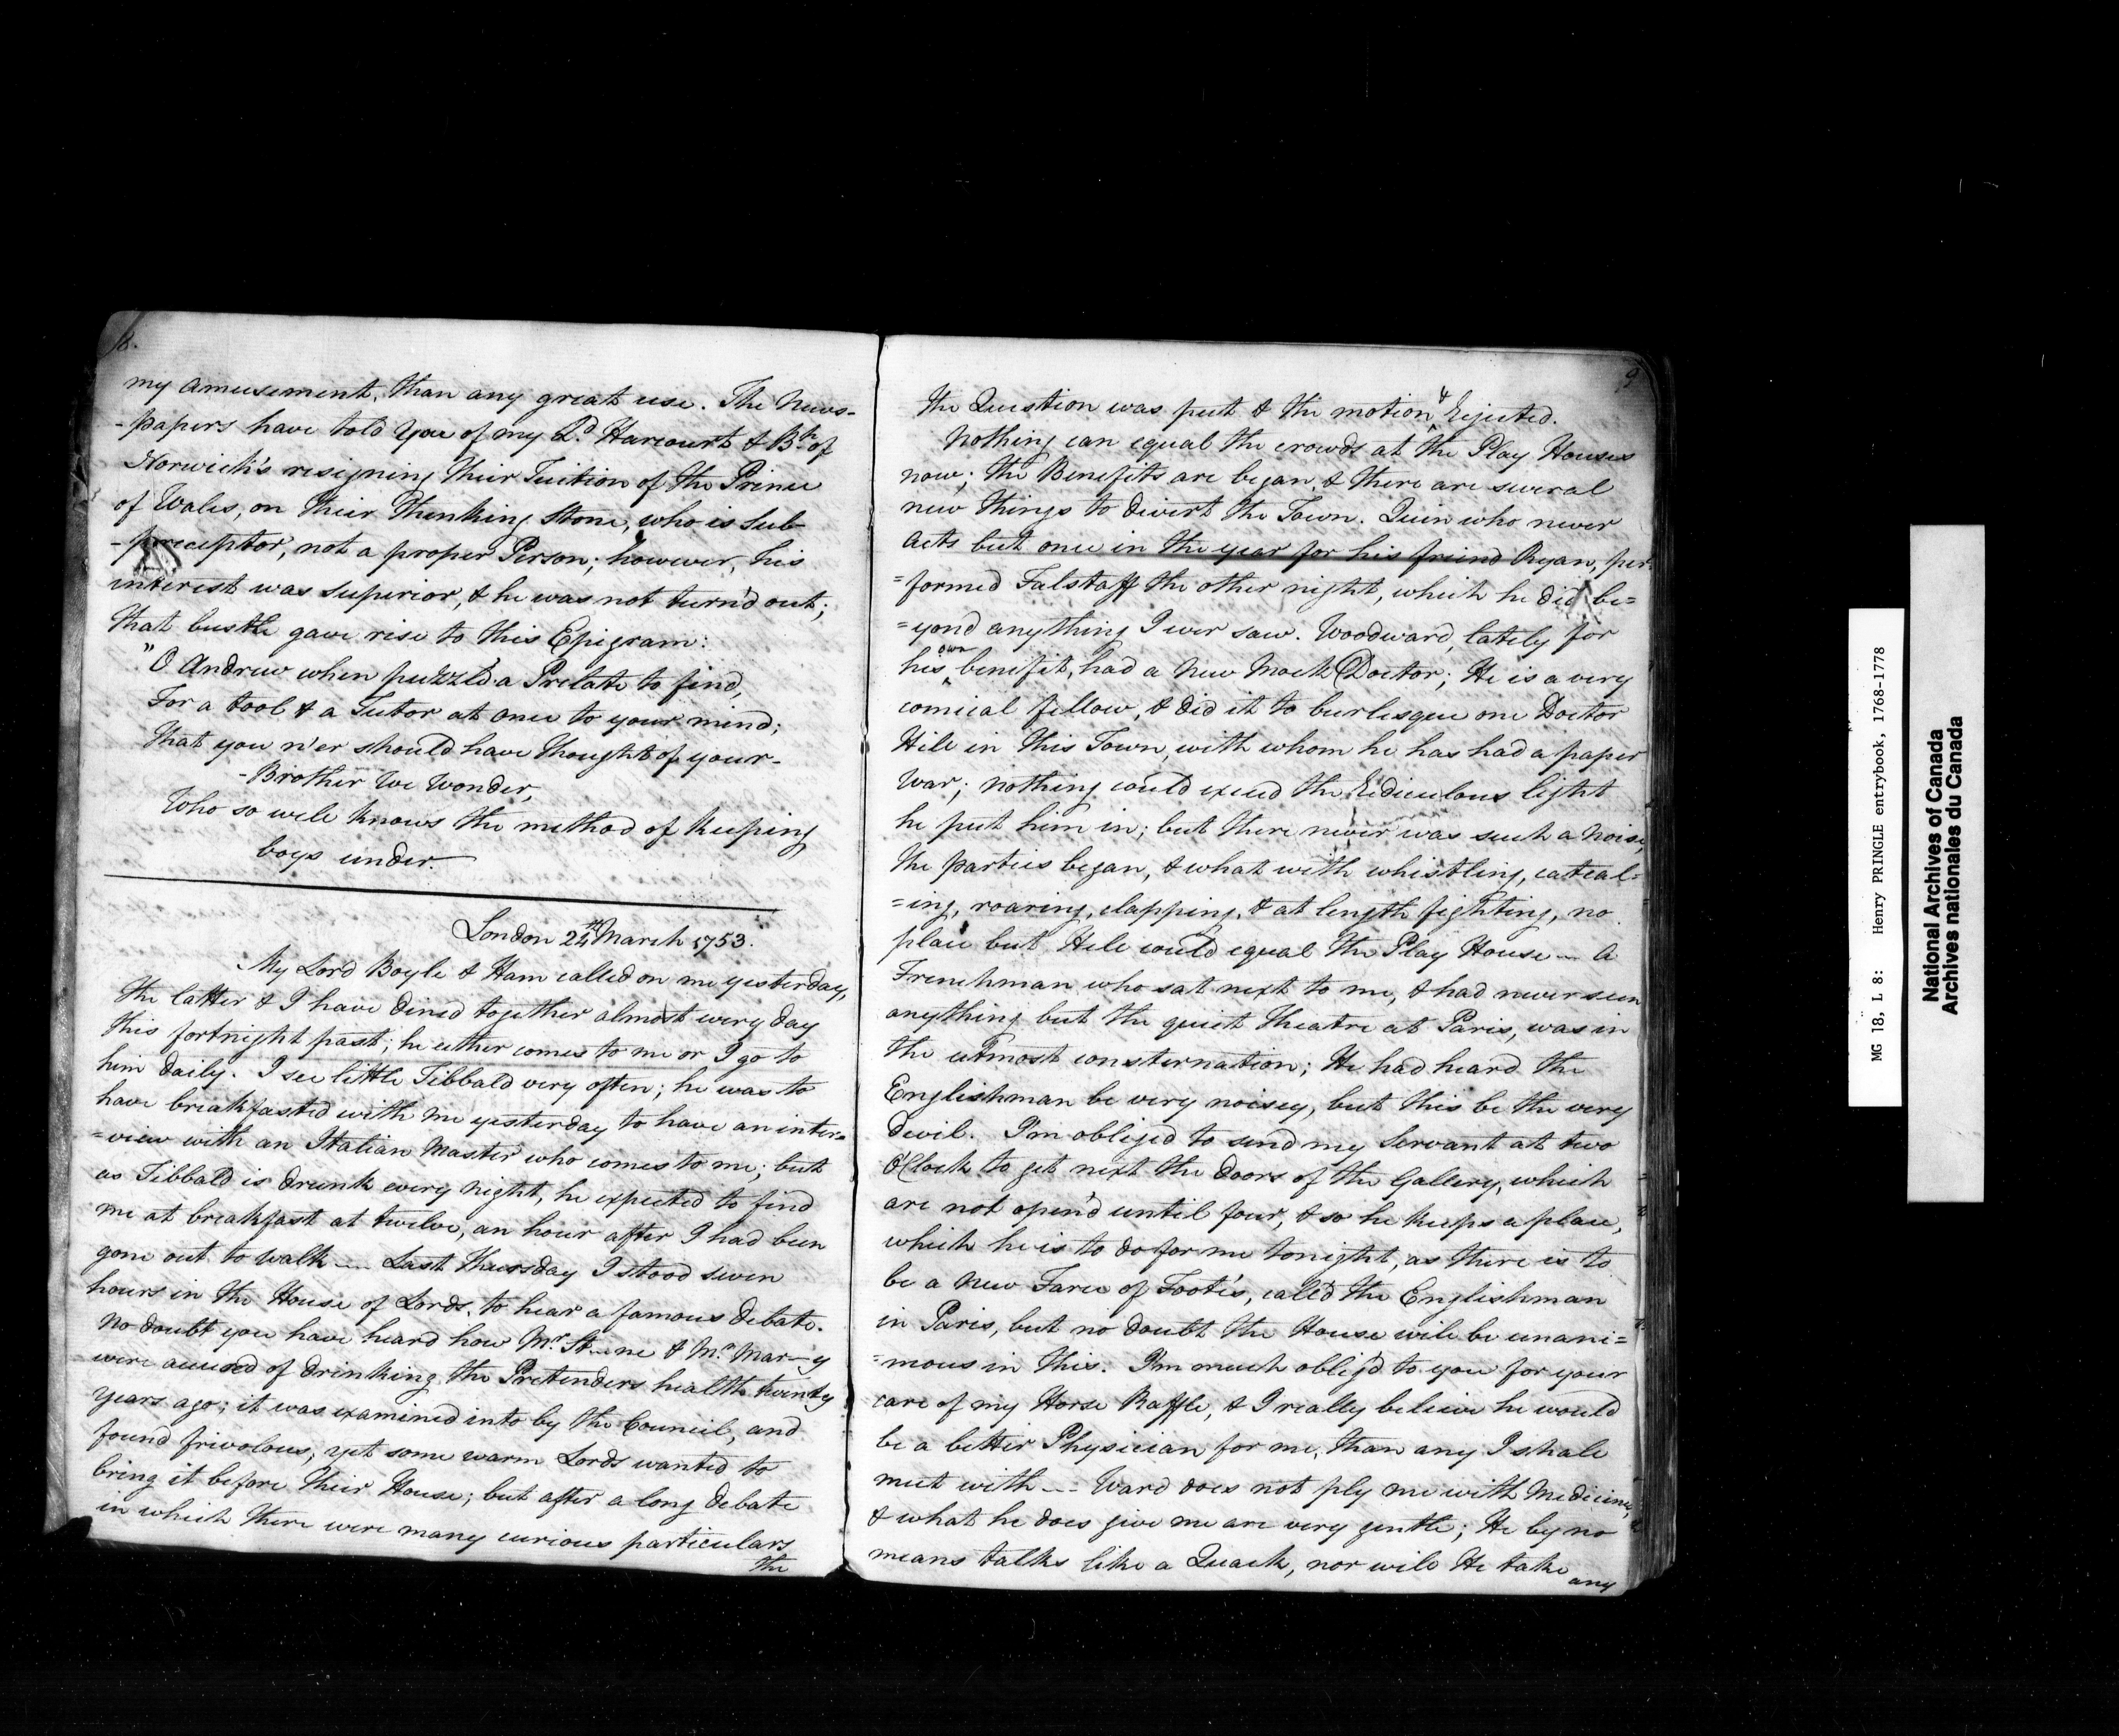 8.
my amusement, than any great use. The News-
-papers have told you of my Ld. Harcourt & Bp. of
Norwich's resigning their Tuition of the Prince
of Wales, on their thinking Stone, who is Sub-
-preceptor, not a proper Person; however, his
interest was superior, & he was not turn'd out;
that bustle gave rise to this Epigram:
"O Andrew when puzzld a Prelate to find,
For a tool & a Tutor at once to your mind;
That you n'er should have thought of your-
-Brother We Wonder,
Who so well knows the method of keeping
boys under.
London 24th March 1753.
My Lord Boyle & Ham called on me yesterday,
the latter & I have dined together almost every day
this fortnight past; he either comes to me or I go to
him daily. I see little Tibbald very often; he was to
have breakfasted with me yesterday to have an inter=
=view with an Italian Master who comes to me; but
as Tibbald is drunk every night, he expected to find
me at breakfast at twelve, an hour after I had been
gone out to walk --- Last Thursday I stood seven
hours in the House of Lords, to hear a famous debate.
No doubt you have heard how Mr. St--ne & Mr. Mar--y
were accused of drinking the Pretenders health twenty
years ago; it was examined into by the Council, and
found frivolous, yet some warm Lords wanted to
bring it before their House; but after a long debate
in which there were many curious particulars
the
9
the Question was put & the motion & Rejected.
Nothing can equal the crowds at the Play Houses
now; the Benefits are began, & there are several
new things to divert the Town. Quin who never
acts but once in the year for his friend Ryan, per-
=formed Falstaff the other night, which he did be=
=yond anything I ever saw. Woodward, lately for
his own benefit, had a New Mock Doctor; He is a very
comical fellow, & did it to burlesque one Doctor
Hill in this Town, with whom he has had a paper
War; nothing could exceed the Rediculous light
he put him in; but there never was such a Noise,
the parties began, & what with whistling, catcal=
=ing, roaring, clapping, & at length fighting, no
place but Hell could equal the Play House --- A
Frenchman who sat next to me, & had never seen
anything but the quiet Theatre at Paris, was in
the utmost consternation; He had heard the
Englishman be very noisey, but this be the very
devil. I'm obliged to send my Servant at two
O'Clock to get next the doors of the Gallery, which
are not open'd until four, & so he keeps a place,
which he is to do for me tonight, as there is to
be a New Farce of Foot's, call'd the Englishman
in Paris, but no doubt the House will be unani=
=mous in this. I'm much oblig'd to you for your
care of my Horse Raffle, & I really believe he would
be a better Physician for me, than any I shall
meet with --- Ward does not ply me with Medicines,
& what he does give me are very gentle; He by no
means talks like a Quack, nor will He take
any
MG 18, L 8: Henry PRINGLE entrybook, 1768-1778
National Archives of Canada
Archives nationales du Canada